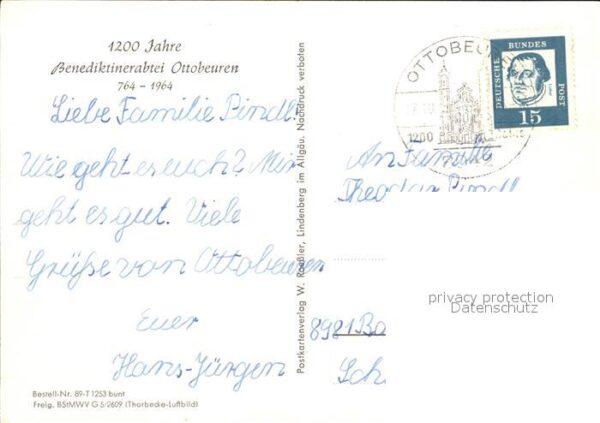 1200 Jahre
Benediktinerabtei Ottobeuren
764 – 1964
Liebe Familie Pindl!
Wie geht es euch? Mir
geht es gut. Viele
Grüße von Ottobeuren
Euer
Hans-Jürgen
Bestell-Nr. 89-T 1253 bunt
Freig. BStMWV G 5/2609 (Thorbecke-Luftbild)
Postkartenverlag W. Roeßler, Lindenberg im Allgäu. Nachdruck verboten
OTTOBEU
1200
DEUTSCHE
BUNDES
POST
15
An Familie
Theodor Pindl
privacy protection
Datenschutz
8981 Bo
Sch